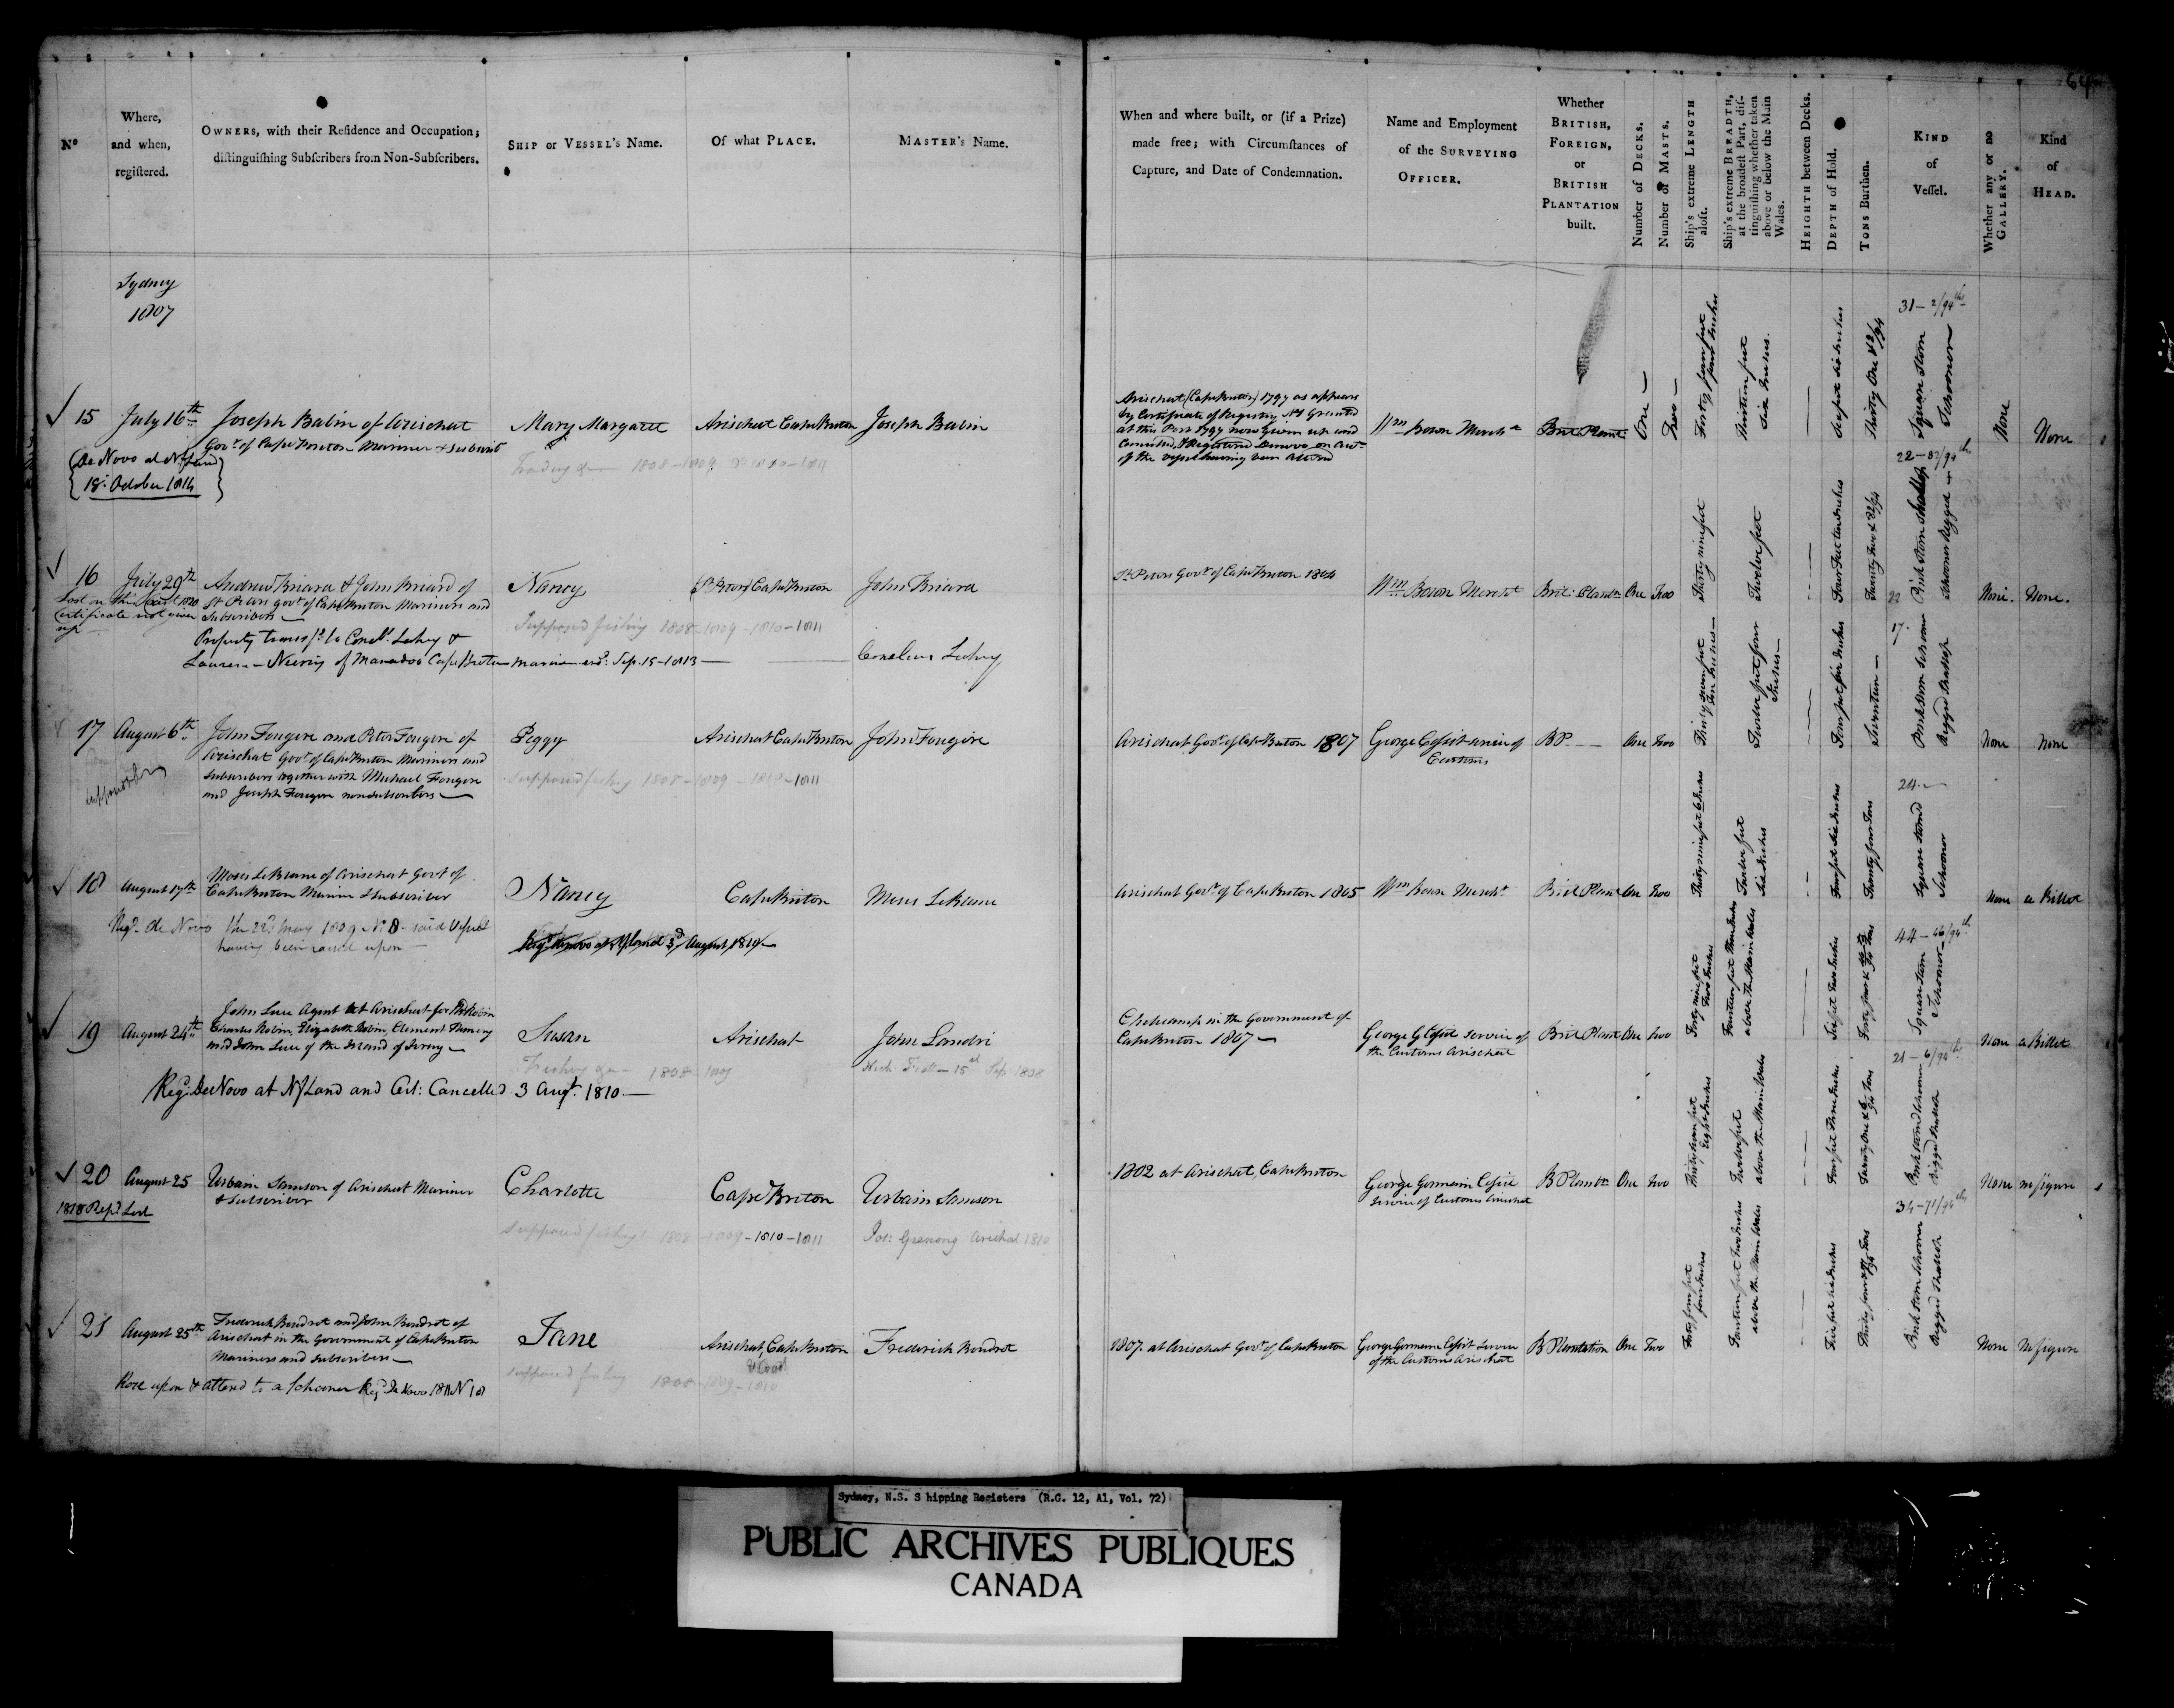 64
Nº
Where,
and when,
regiſtered.
OWNERS, with their Reſidence and Occupation;
diſtinguiſhing Subſcribers from Non-Subſcribers.
SHIP or VESSEL's Name.
Of what PLACE.
MASTER's Name.
When and where built, or (if a Prize)
made free; with Circumſtances of
Capture, and Date of Condemnation.
Name and Employment
of the SURVEYING
OFFICER.
Whether
BRITISH,
FOREIGN,
or
BRITISH
PLANTATION
built.
Number of DECKS.
Number of MASTS.
Ship's extreme LENGTH
aloft.
Ship's extreme BREADTH,
at the broadeſt Part, diſ-
tinguiſhing whether taken
above or below the Main
Wales.
HEIGHTH between Decks.
DEPTH of Hold.
TONS Burthen.
KIND
of
Veſſel.
Whether any or no
GALLERY.
Kind
of
HEAD.
Sydney
1807
15 July 16th Joseph Babin of Arichat
Govt of Cape Breton Mariner & Subscribr
Mary Margaret
Trading 1808-1809 1810-1811
Arichat Cape Breton
Joseph Babin
De Novo at Nfland
18 October 1814
Arichat (Cape Breton) 1797 as appears
by Certificate of Registry Granted
at this Port 1797 now given up and
Cancelled, & Registered Denovo on acct
of the vessel having been altered
Wm Bown Mercht
Brit Plant
One
Two
Forty four feet
four Inches
Thirteen feet
Six Inches.
Six feet six Inches
Thirty One & 2/94
31-2/94th
Square Stern
Schooner
None
None
16 July 29th Andrew Briard & John Briard of
St Peters govt of Cape Breton Mariners and
Subscribers
Certificate not given
up
Nancy
Supposed fishing 1808-1809-1810-1811
St Peters Cape Breton
John Briard
Property transfd to Cornels Leahey &
of Cape Breton Mariners Sep. 15-1813
Cornelius Leahey
St Peters Govt of Cape Breton 1804
Wm Bown Mercht
Brit: Plantn
One
Two
Thirty nine feet
Twelve feet
Four Feet ten Inches
22-82/94th
Pink Stern Shallop
Schooner Rigged
None.
None.
17 August 6th John Fougere and Peter Fougere of
Arichat Govt of Cape Breton Mariners and
Subscribers together with Michael Fougere
and Joseph Fougere nonsubscribers
Peggy
Supposed fishing 1808-1809-1810-1811
Arichat Cape Breton
John Fougere
Arichat Govt of Cape Breton 1807
Customs
BP.
One
Two
Thirty seven feet
ten Inches
Twelve feet four
Inches
Seventeen
17.
Pink Stern Schooner
Rigged Shallop
None
None
18 August 17th Moses LeBlanc of Arichat Govt of
Cape Breton Mariner & Subscriber
Nancy
Cape Breton
Moses LeBlanc
Regd De Novo the 22d May 1809 No 8 said Vessel
having been raised upon
Arichat Govt of Cape Breton 1805
Wm Bown Mercht
Brit Plant
One
Two
Thirty nine feet 6 Inches
Twelve feet
Six Inches
Twenty four Tons
24.
Square Sternd
Schooner
None
a Billet
19 August 24th John Luce Agent at Arichat for P Robin
Charles Robin, Elizabeth Robin, Clement Hemery
and John Luce of the Island of Jersey
Susan
Fishing 1808-1809
Arichat
John Landri
15 Sep. 1808
Reg. De Novo at NfLand and Cert: Cancelled 3 Augt. 1810.
Chetecamp in the Government of
Cape Breton 1807
the Customs Arichat
Brit Plant
One
Two
Forty nine feet
Two Inches
above the Main Wales
44-46/94th
Square Stern
Schooner
None
a Billet
20 August 25 Urbain Samson of Arichat Mariner
& Subscriber
1818 Rept Lost
Charlotte
Supposed fishing 1808-1809-1810-1811
Cape Breton
Urbain Samson
Arichat 1810
1802 at Arichat, Cape Breton
B Plantn
One
Two
Thirty seven feet
Eight Inches
Twelve feet
above the Main Wales
Four feet Three Inches
Twenty One & 6/94 Tons
21-6/94ths
Pink Sternd Schooner
rigged Shallop
None
no figure
21 August 25th Frederick Boudrot and John Boudrot of
Arichat in the Government of Cape Breton
Mariners and Subscribers
Jane
Supposed fishing 1808-1809-1810
Arichat, Cape Breton
Frederick Boudrot
Rose upon & altered to a Schooner Reg. De Novo 1811 No 18
1807. at Arichat Govt of Cape Breton
of the Customs Arichat
B Plantation
One
Two
Forty four feet
four Inches
Fourteen feet Two Inches
above the Main Wales
Five feet six Inches
34-71/94ths
Pink Stern Schooner
Rigged Shallop
None
No figure
Sydney, N.S. S hipping Registers (R.G. 12, A1, Vol. 72)
PUBLIC ARCHIVES PUBLIQUES
CANADA